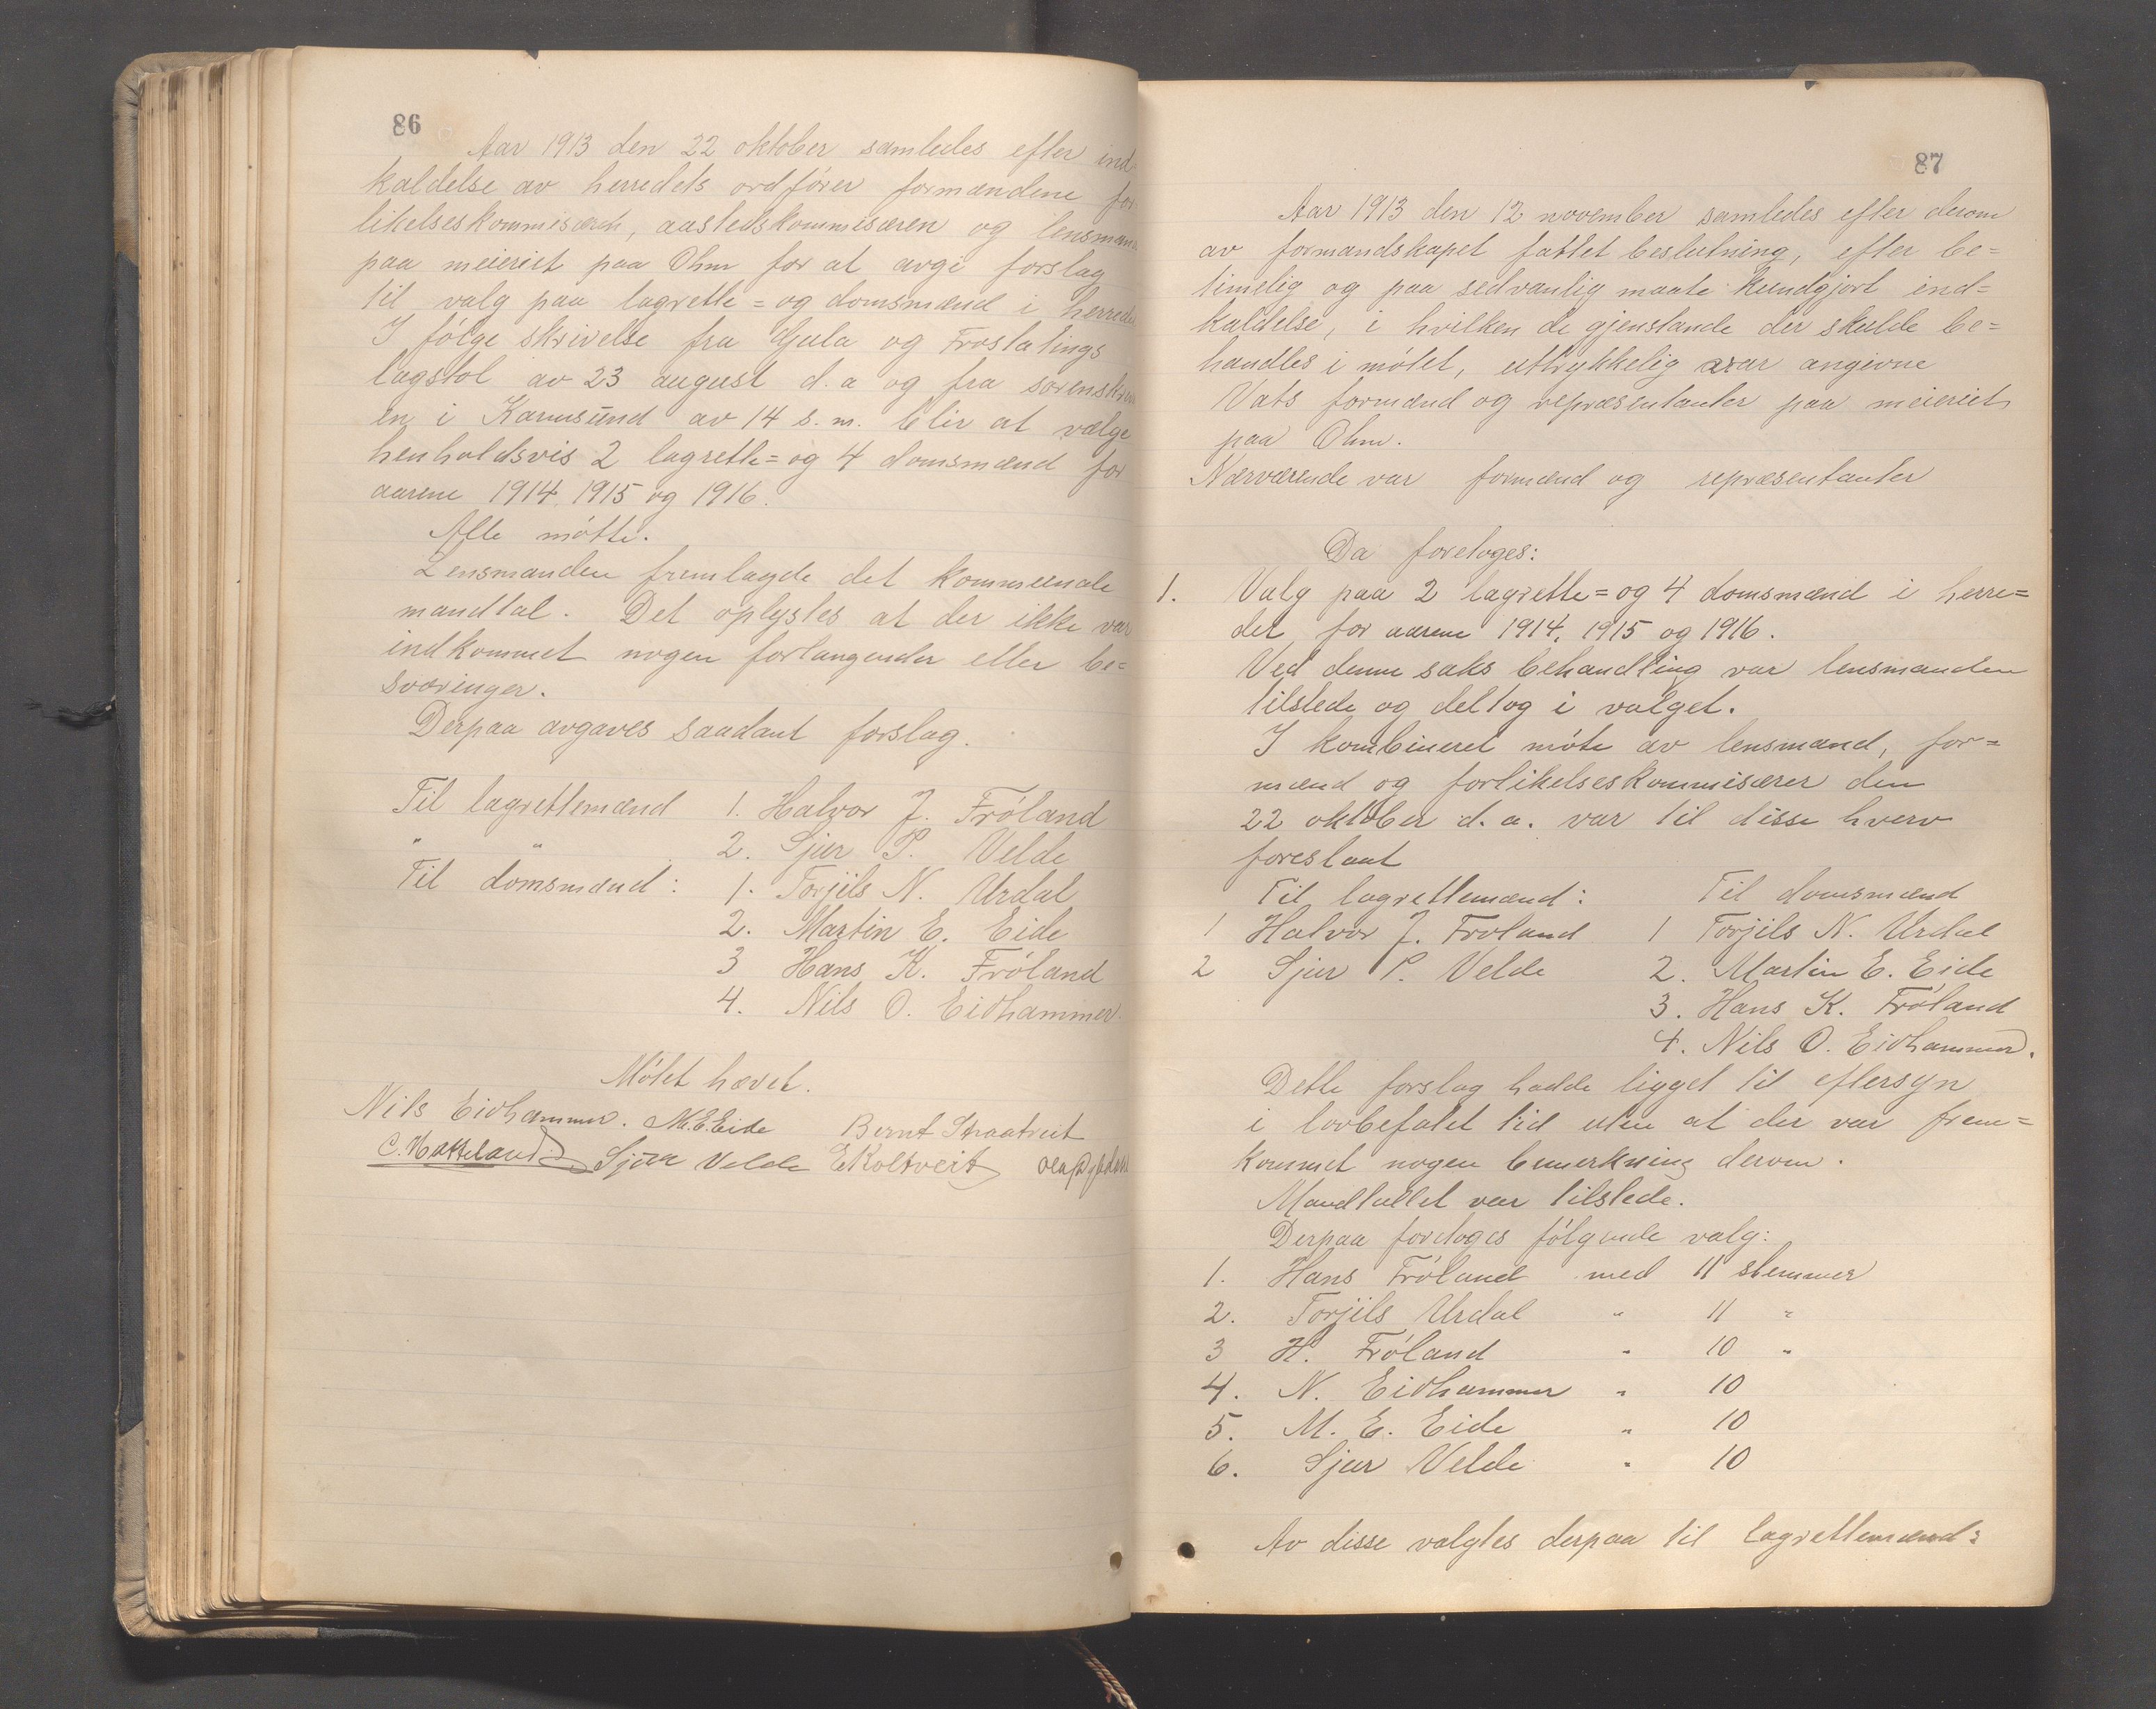 86
Aar 1913 den 22 oktober samledes efter ind
kaldelse av herredets ordfører formændene for
likelseskommisæren, aastedskommisæren og lensmand
paa meieriet paa Ohm for at avgi forslag
til valg paa lagrette= og domsmænd i herredet
I følge skrivelse fra Gula og Frostatings
lagstol av 23 august d.a og fra sorenskriver
en i Karmsund av 14 s.m. blir at vælge
henholdsvis 2 lagrette= og 4 domsmænd for
aarene 1914, 1915 og 1916.
Alle møtte.
Lensmanden fremlagde det kommunale
mandtal. Det oplystes at der ikke var
indkommet nogen forlangender eller be=
sværinger.
Derpaa avgaves saadant forslag.
Til lagrettemænd 1. Halvor J. Frøland
" " 2. Sjur P. Velde
Til domsmænd: 1. Torjils N. Urdal
2. Martin E. Eide
3 Hans K. Frøland
4. Nils O. Eidhammer.
Møtet hævet.
Nils Eidhammer. M.E.Eide Bernt Straatveit
C. Hatteland. Sjur Velde EKoltveit
87
Aar 1913 den 12 november samledes efter derom
av formandskapet fattet beslutning, efter be=
timelig og paa sedvanlig maate kundgjort ind=
kaldelse, i hvilken de gjenstande der skulde be=
handles i møtet, uttrykkelig var angivne
Vats formænd og repræsentanter paa meieriet
paa Ohm.
Nærværende var formænd og repræsentanter
Da foretoges:
1. Valg paa 2 lagrette= og 4 domsmænd i herre=
det for aarene 1914, 1915 og 1916.
Ved denne saks behandling var lensmanden
tilstede og deltog i valget.
I kombineret møte av lensmand, for=
mænd og forlikelseskommisærer den
22 oktober d.a. var til disse hverv
foreslaat
Til lagrettemænd: Til domsmænd
1 Halvor J. Froland 1 Torjils N. Urdal
2 Sjur P. Velde 2. Martin E. Eide
3. Hans K. Frøland
4. Nils O. Eidhammer.
Dette forslag hadde ligget til eftersyn
i lovbefalet tid uten at der var frem=
kommet nogen bemerkning derom.
Mandtallet var tilstede.
Derpaa foretoges følgende valg:
1. Hans Frøland med 11 stemmer
2. Torjils Urdal " 11 "
3 H. Frøland " 10 "
4. N. Eidhammer " 10
5. M. E. Eide " 10
6. Sjur Velde " 10
Av disse valgtes derpaa til lagrettemænd: